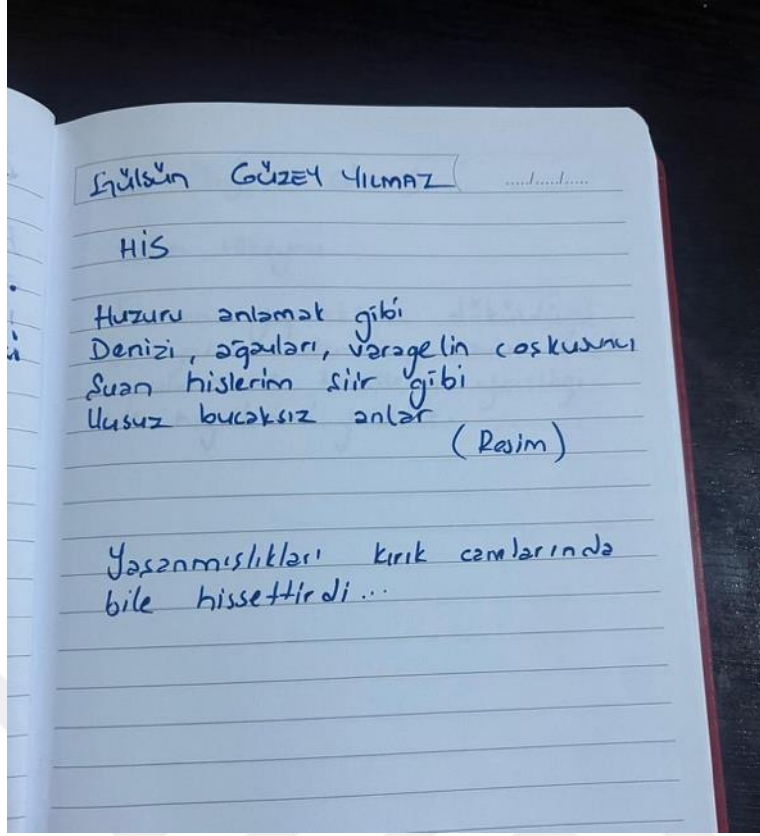 Gülsün GÜZEY YILMAZ ...../...../.....
HİS
Huzuru anlamak gibi
Denizi, ağaçları, varagelin coşkusunu
Şuan hislerim şiir gibi
Uusuz bucaksız anlar
(Resim)
Yaşanmışlıkları kırık camlarında
bile hissettirdi...